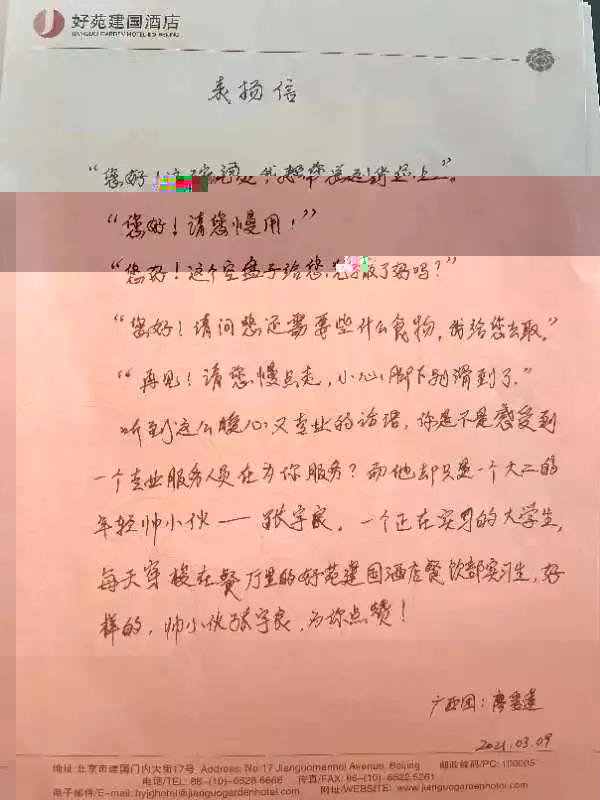 好苑建国酒店
JIANGUO GARDEN HOTEL BEIJING
表扬信
“您好！
“您好！请您慢用！”
“您好！这个空盘子给您,收了好吗？”
“您好！请问您还需要些什么食物，我给您去取。”
“再见！请您慢点走，小心脚下别滑到了。”
听到这么暖心又专业的话语，你是不是感受到
一个专业服务人员在为你服务？而他却只是一个大二的
年轻帅小伙——张宇良。一个正在实习的大学生，
每天穿梭在餐厅里的好苑建国酒店餐饮部实习生，好
样的，帅小伙张宇良，为你点赞！
广西团：廖
2021.03.09
地址:北京市建国门内大街17号 Address: No.17 Jianguomennei Avenue, Beijing 邮政编码/PC: 100005
电话/TEL: 86-(10)-6528 6666 传真/FAX: 86-(10)-6522 5261
电子邮件/E-mail: hyjghotel@jianguogardenhotel.com 网址/WEBSITE: www.jianguogardenhotel.com